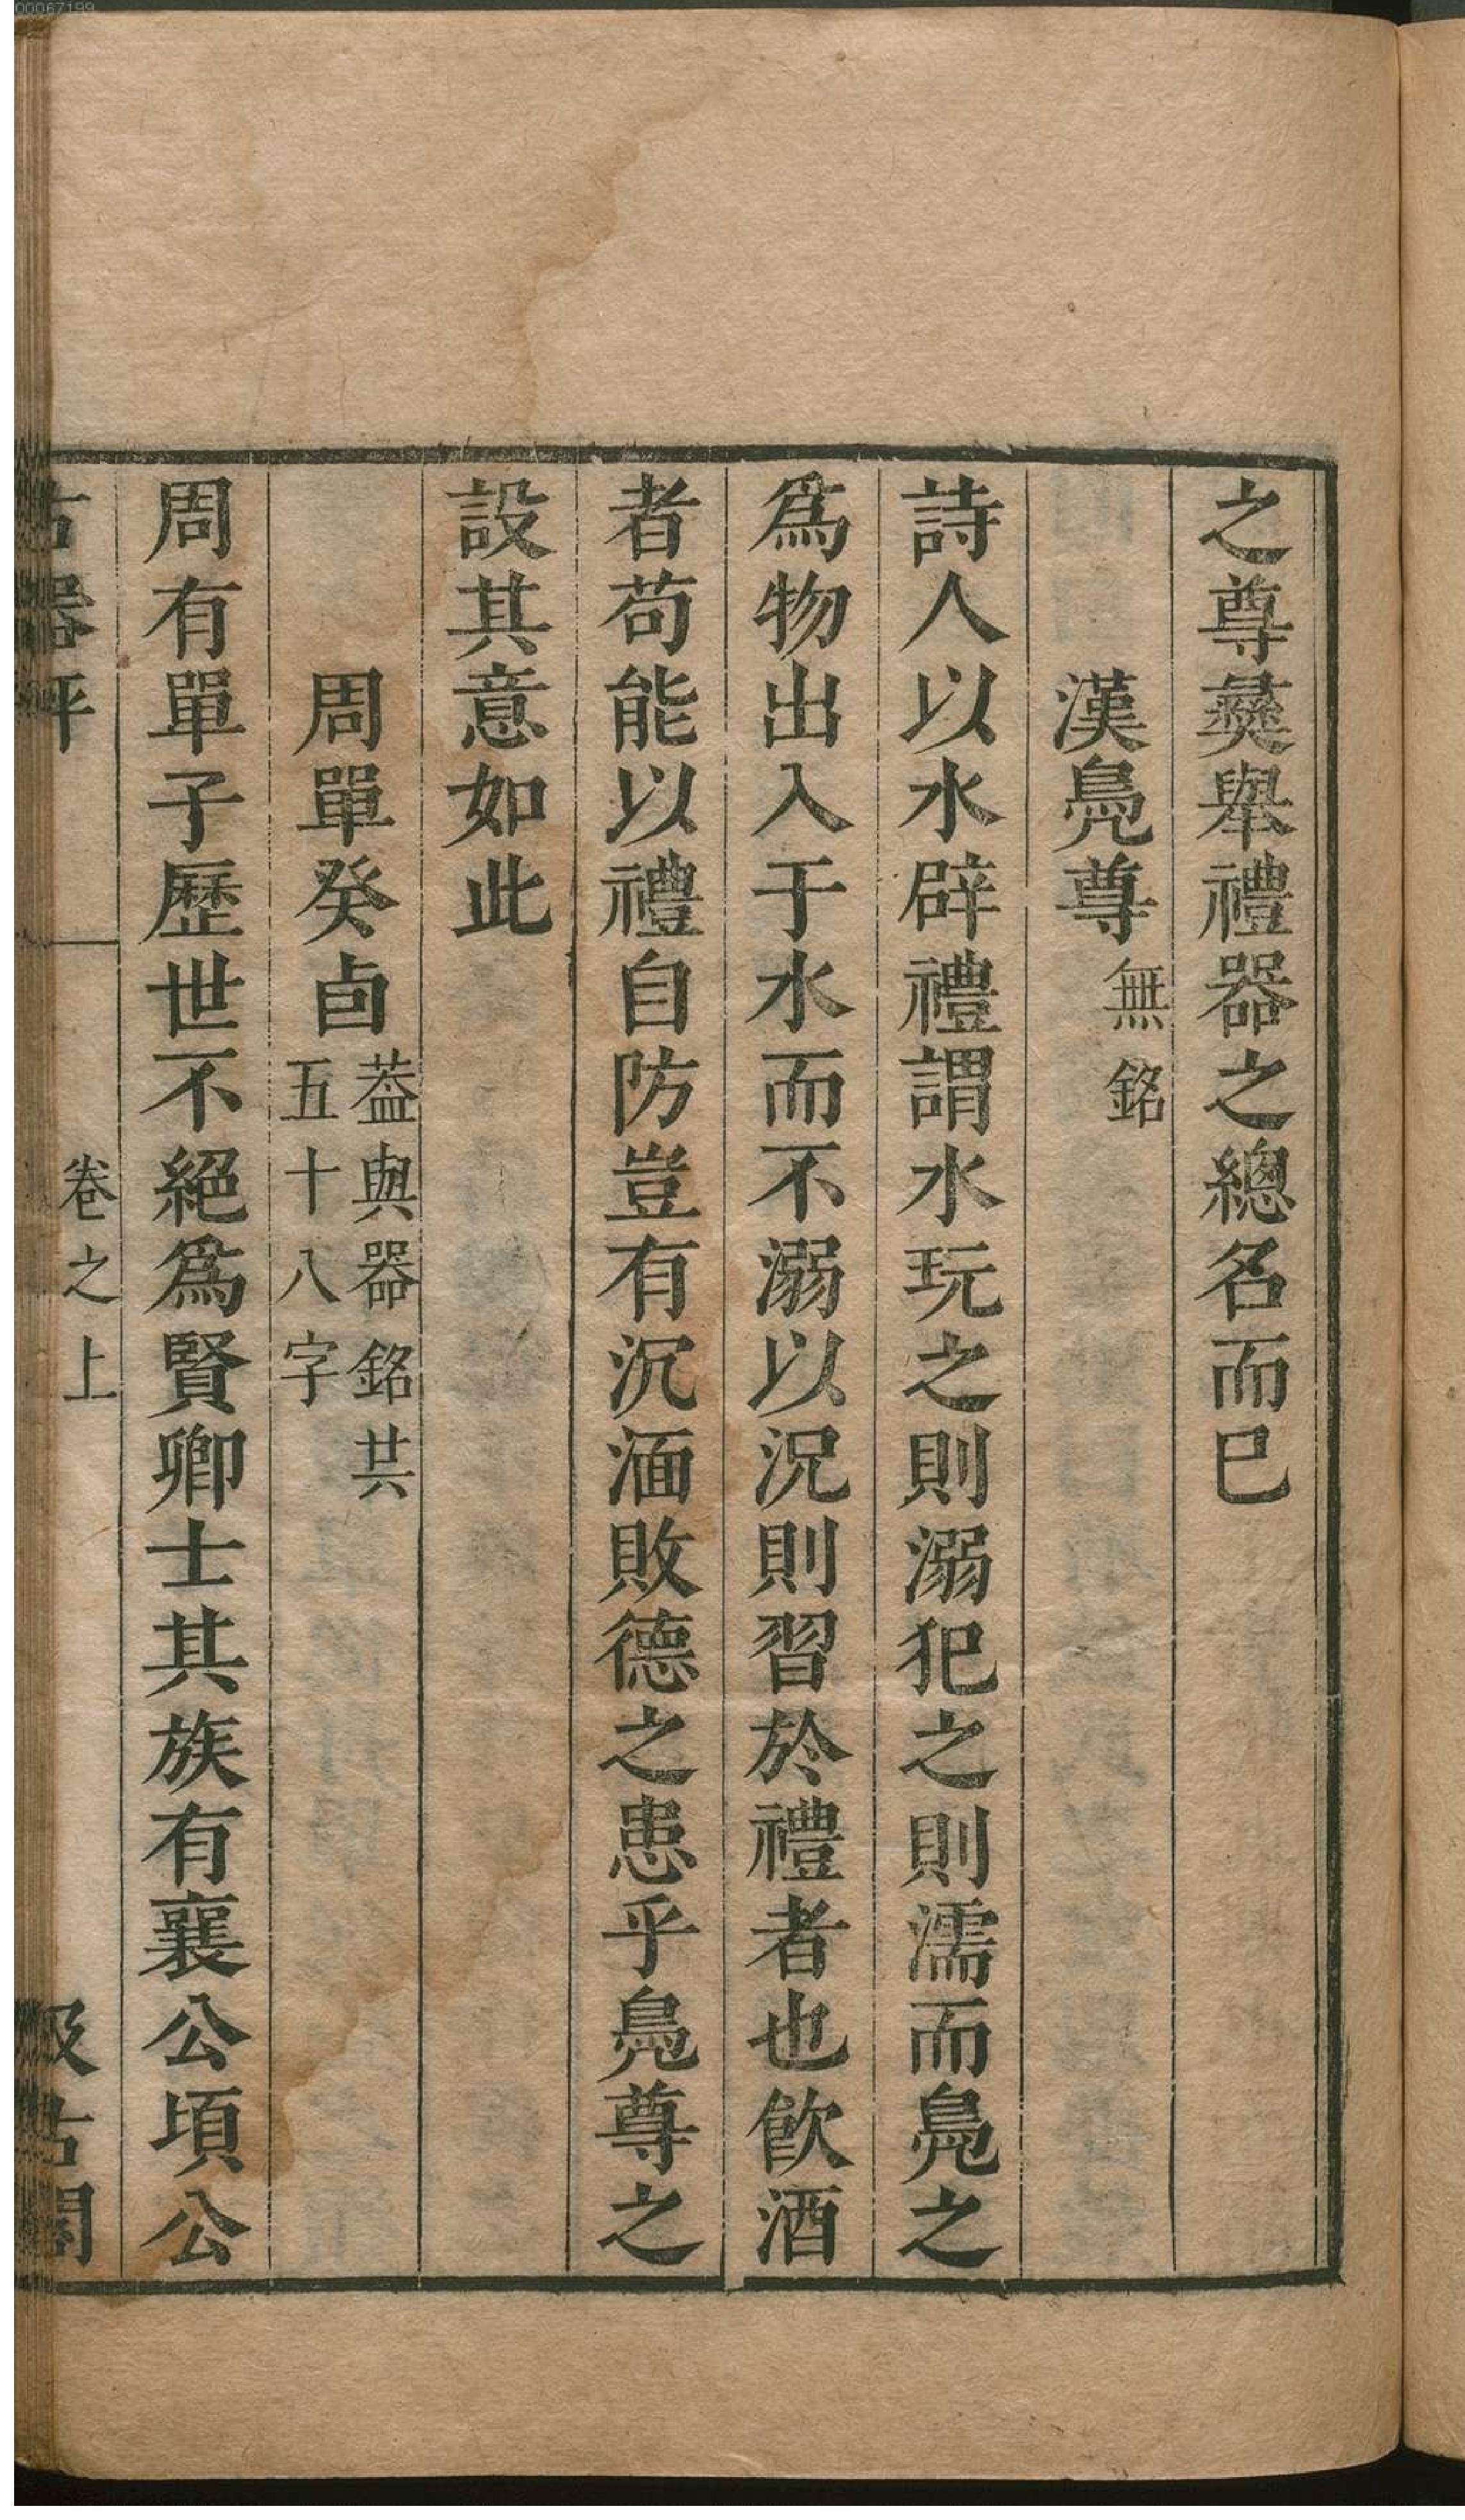 之尊彞舉禮器之總名而巳
漢鳧尊無銘
詩人以水辟禮謂水玩之則溺犯之則濡而鳧之
爲物出入于水而不溺以况則習於禮者也飮酒
者苟能以禮自防豈有沉湎敗德之患乎鳧尊之
設其意如此
周單癸卣葢與器銘共
五十八字
周有單子歷世不絕爲賢卿士其族有襄公頃公
古器評 卷之上 汲古閣
00067199